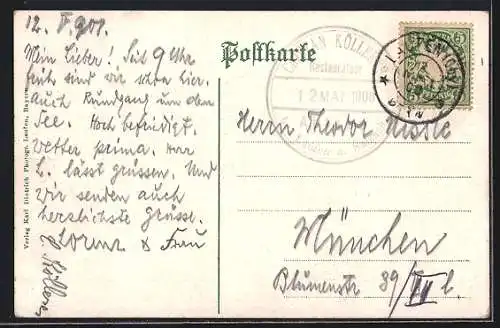 12. V. 901.
Mein Lieber! Seit 9 Uhr
früh sind wir schon hier.
Auch Rundgang um oben
See. Hoch befriedigt.
Wetter prima.
L. lässt grüssen. Und
wir senden auch
herzlichste Grüsse.
Lorenz & Frau
Verlag Karl Dietrich Photogr. Laufen, Bayern
Postkarte
KÖLLE
Restaurateur
12 MAI 1908
5
Herrn Theodor
München
Blumenstr 39/IV l.